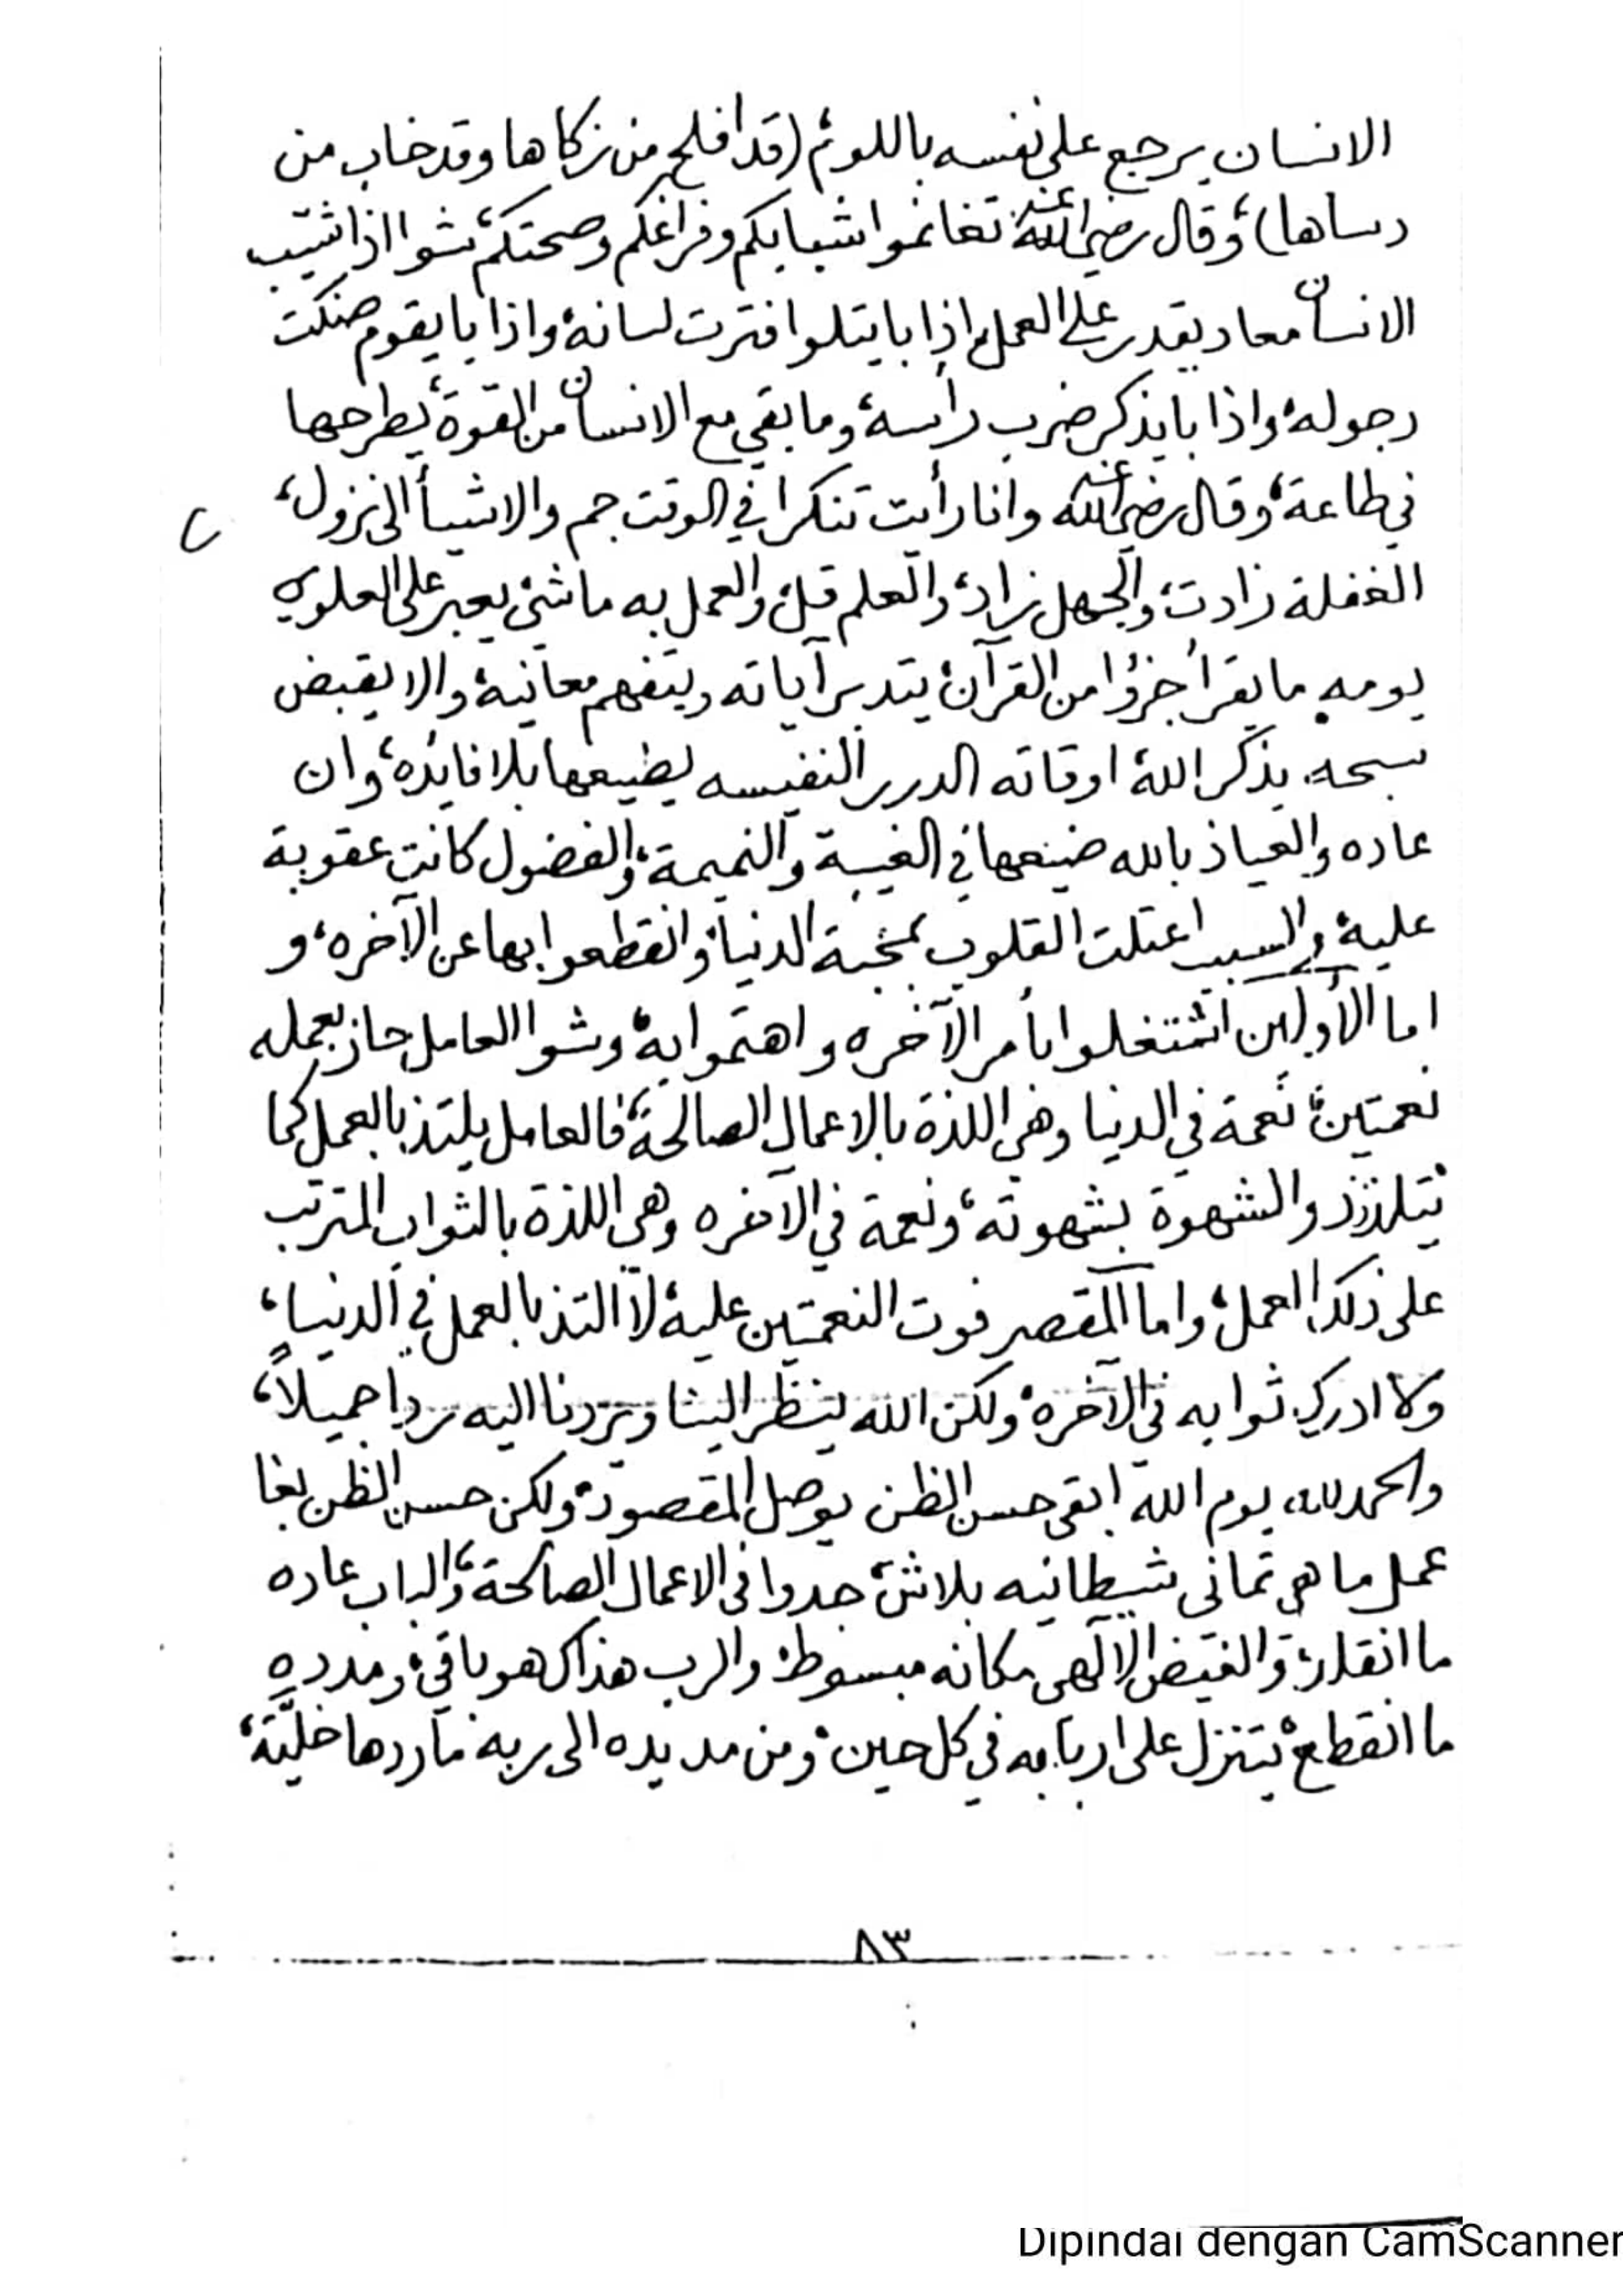 الانسان يرجع على نفسه باللوم، (قد افلح من زكاها وقد خاب من
دساها)، وقال رضي الله عنه تغانموا شبابكم وفراغكم وصحتكم، شوا اذا شيّب
الانسان معاد يقدر على العمل، اذا با يتلو افترت لسانه، واذا با يقوم صنكت
رجوله، واذا با يذكر ضرب رأسه، وما بقي مع الانسان من القوة، يطرحها
في طاعة، وقال رضي الله عنه وانا رأيت تنكرا في الوقت جم والاشيأ الى نزول،
الغفلة زادت، والجهل زاد، والعلم قل، والعمل به ما شئ يعبر على العلوي
يومه ما يقرأ جزؤا من القرآن، يتدبر آياته ويتفهم معانيه، والا يقبض
سبحه يذكر الله، اوقاته الدرر النفيسه يضيعها بلا فايده، وان
عاده والعياذ بالله ضيعها في الغيبة والنميمة، والفضول كانت عقوبة
عليه، والسبب اعتلت القلوب بمحبة الدنيا، وانقطعوا بها عن الآخره، و
اما الأولين اشتغلوا بأمر الآخره واهتموا به، وشوا العامل حاز بعمله
نعمتين، نعمة في الدنيا وهي اللذة بالاعمال الصالحة، فالعامل يلتذ بالعمل كما
تتلذذ والشهوة بشهوته، ونعمة في الآخره وهي اللذة بالثواب المترتب
على ذلك العمل، واما المقصر فوت النعمتين عليه، لا التذ بالعمل في الدنيا،
ولا ادرك ثوابه في الآخره، ولكن الله ينظر الينا ويردنا اليه رداً جميلاً،
والحمد لله يوم الله ابقى حسن الظن يوصل المقصود، ولكن حسن الظن بغا
عمل ما هي تماني شيطانيه بلاش، جدوا في الاعمال الصالحة، والباب عاده
ما انقلد، والفيض الالهي مكانه مبسوط، والرب هذاك هو باقي، ومدده
ما انقطع، يتنزل على اربابه في كل حين، ومن مد يده الى ربه ما ردها خليّة،
٨٣
Dipindai dengan CamScanner